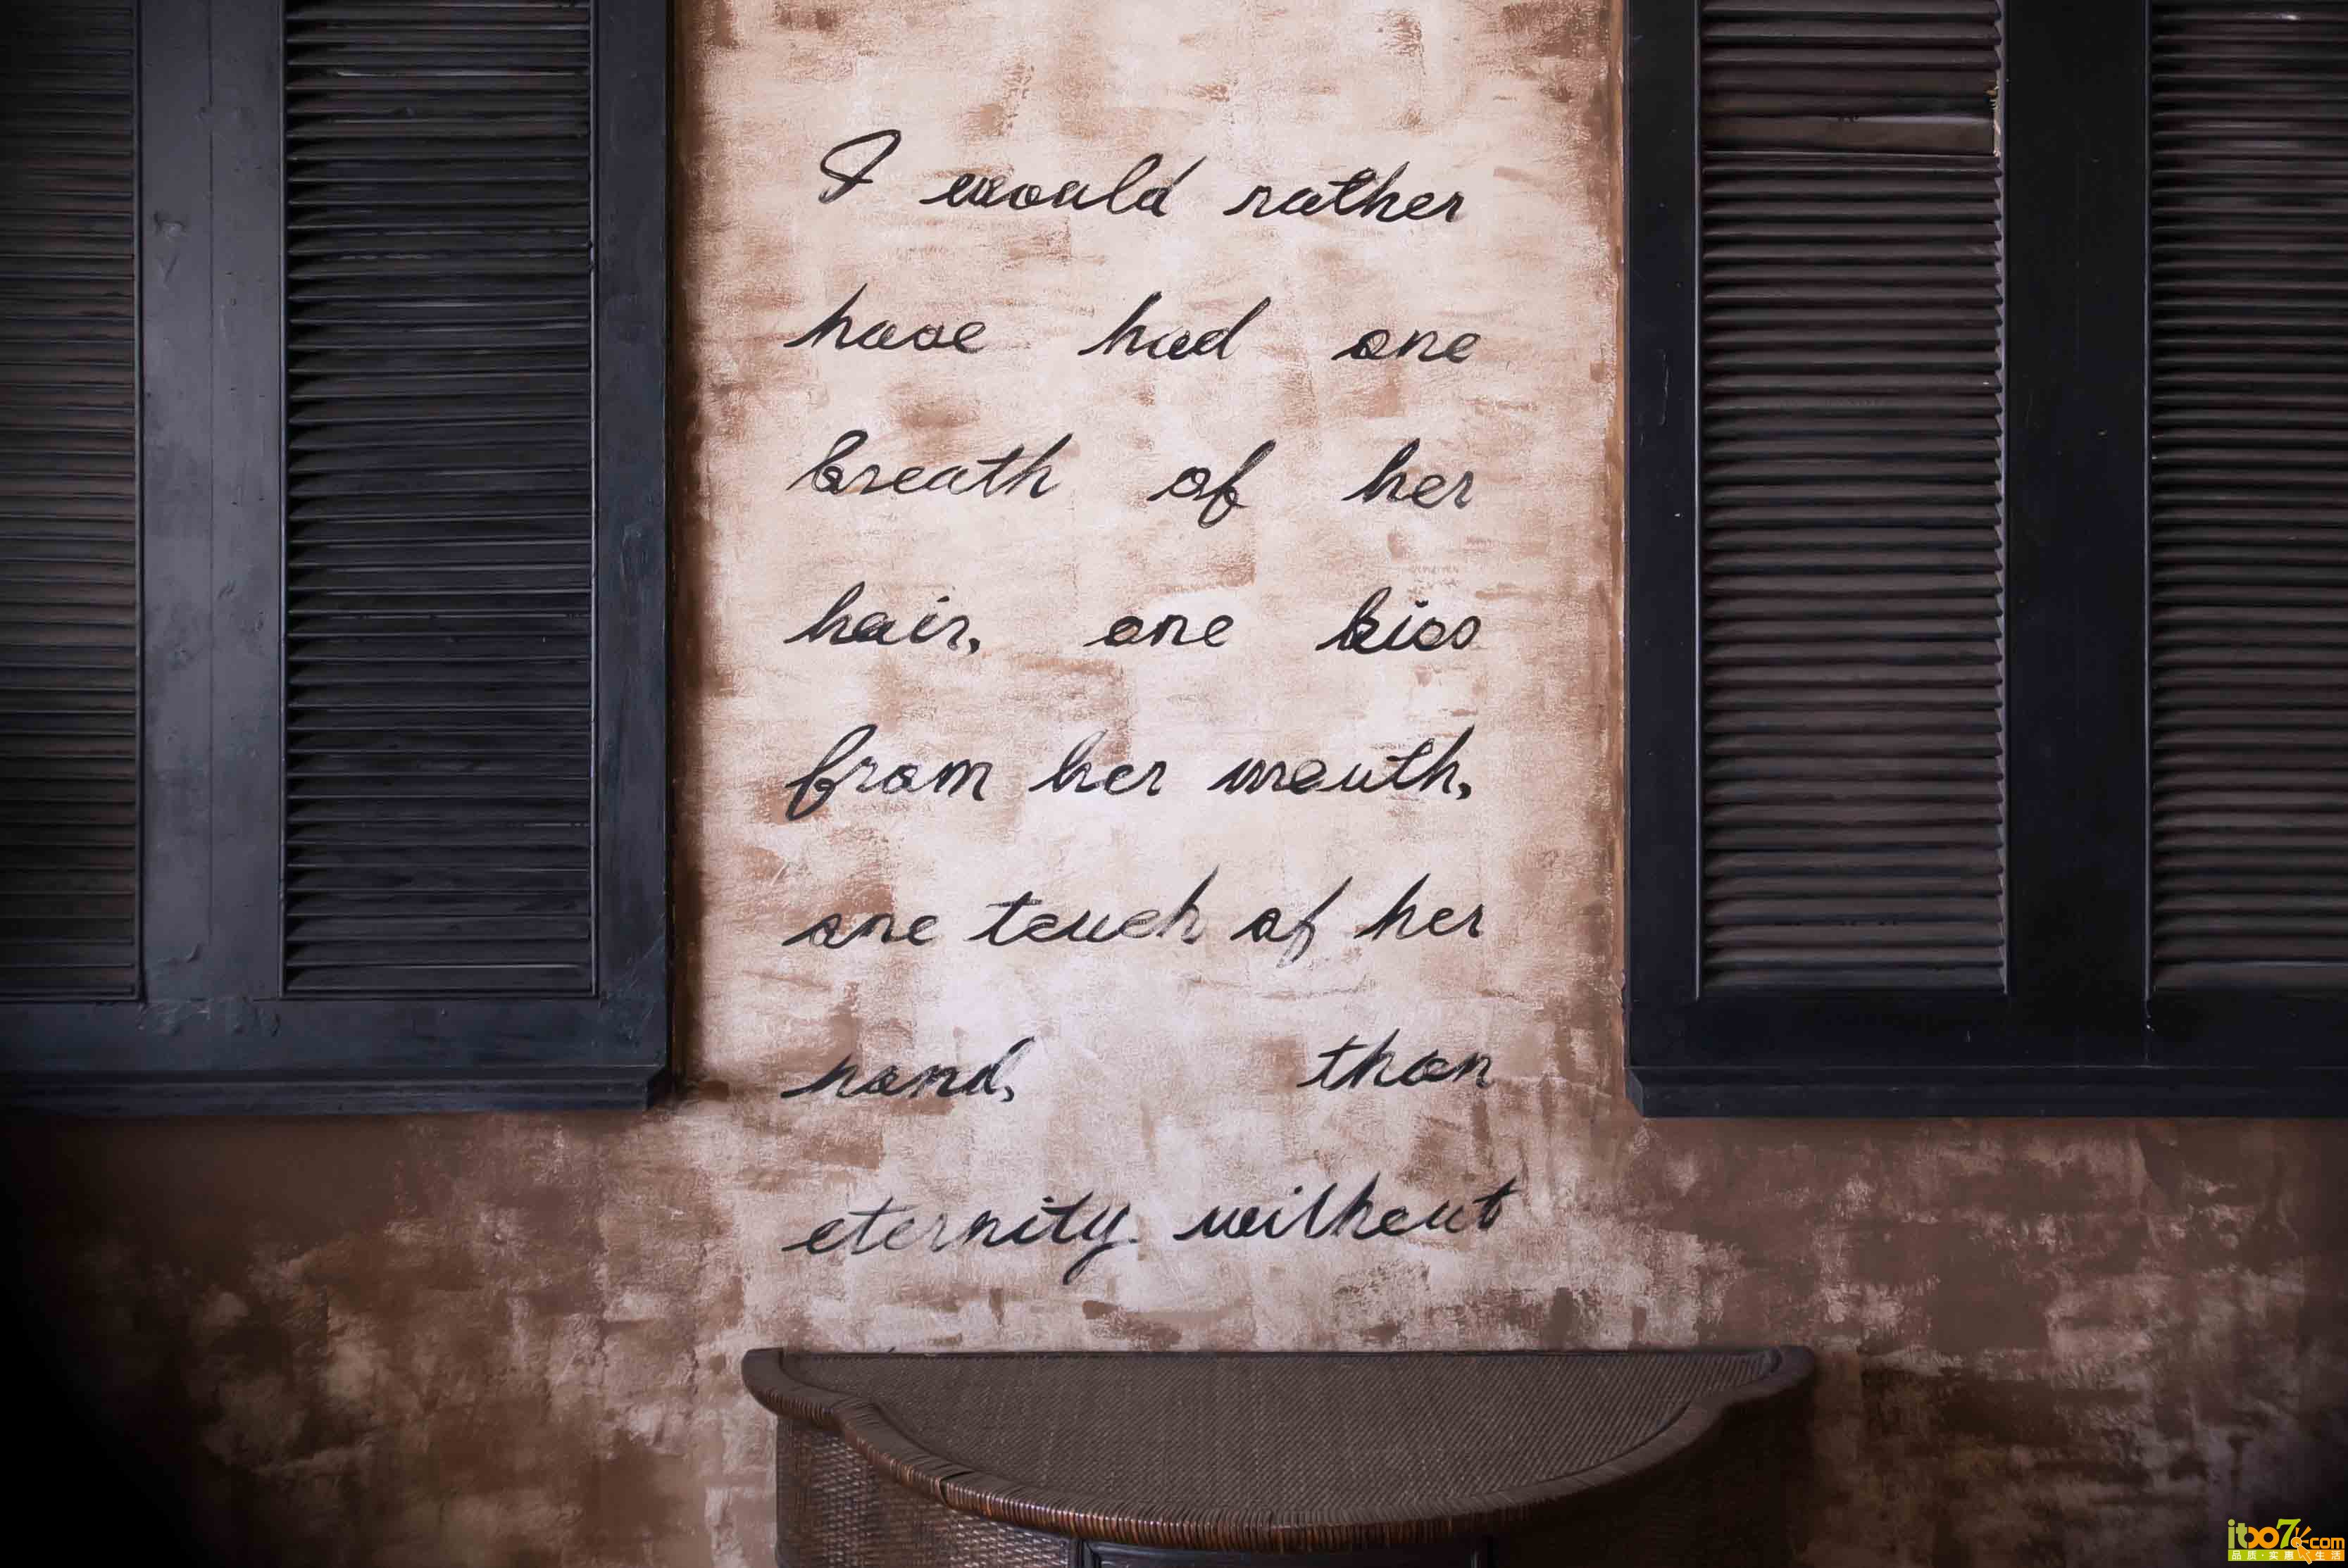 I would rather
have had one
breath of her
hair, one kiss
from her mouth,
one touch of her
hand, than
eternity without
itoo7.com
品质·实惠 生活